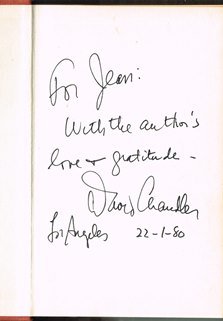 For Jean:
With the author's
love & gratitude -
David Chandler
Los Angeles 22-1-80